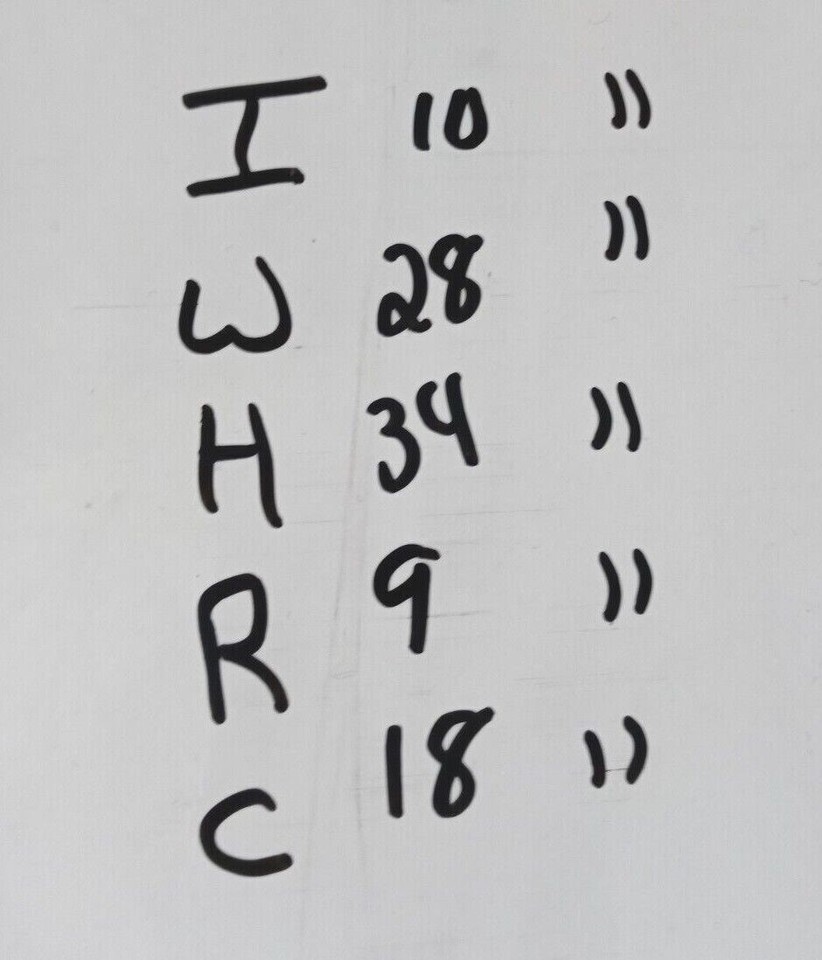 I 10 "
W 28 "
H 34 "
R 9 "
C 18 "